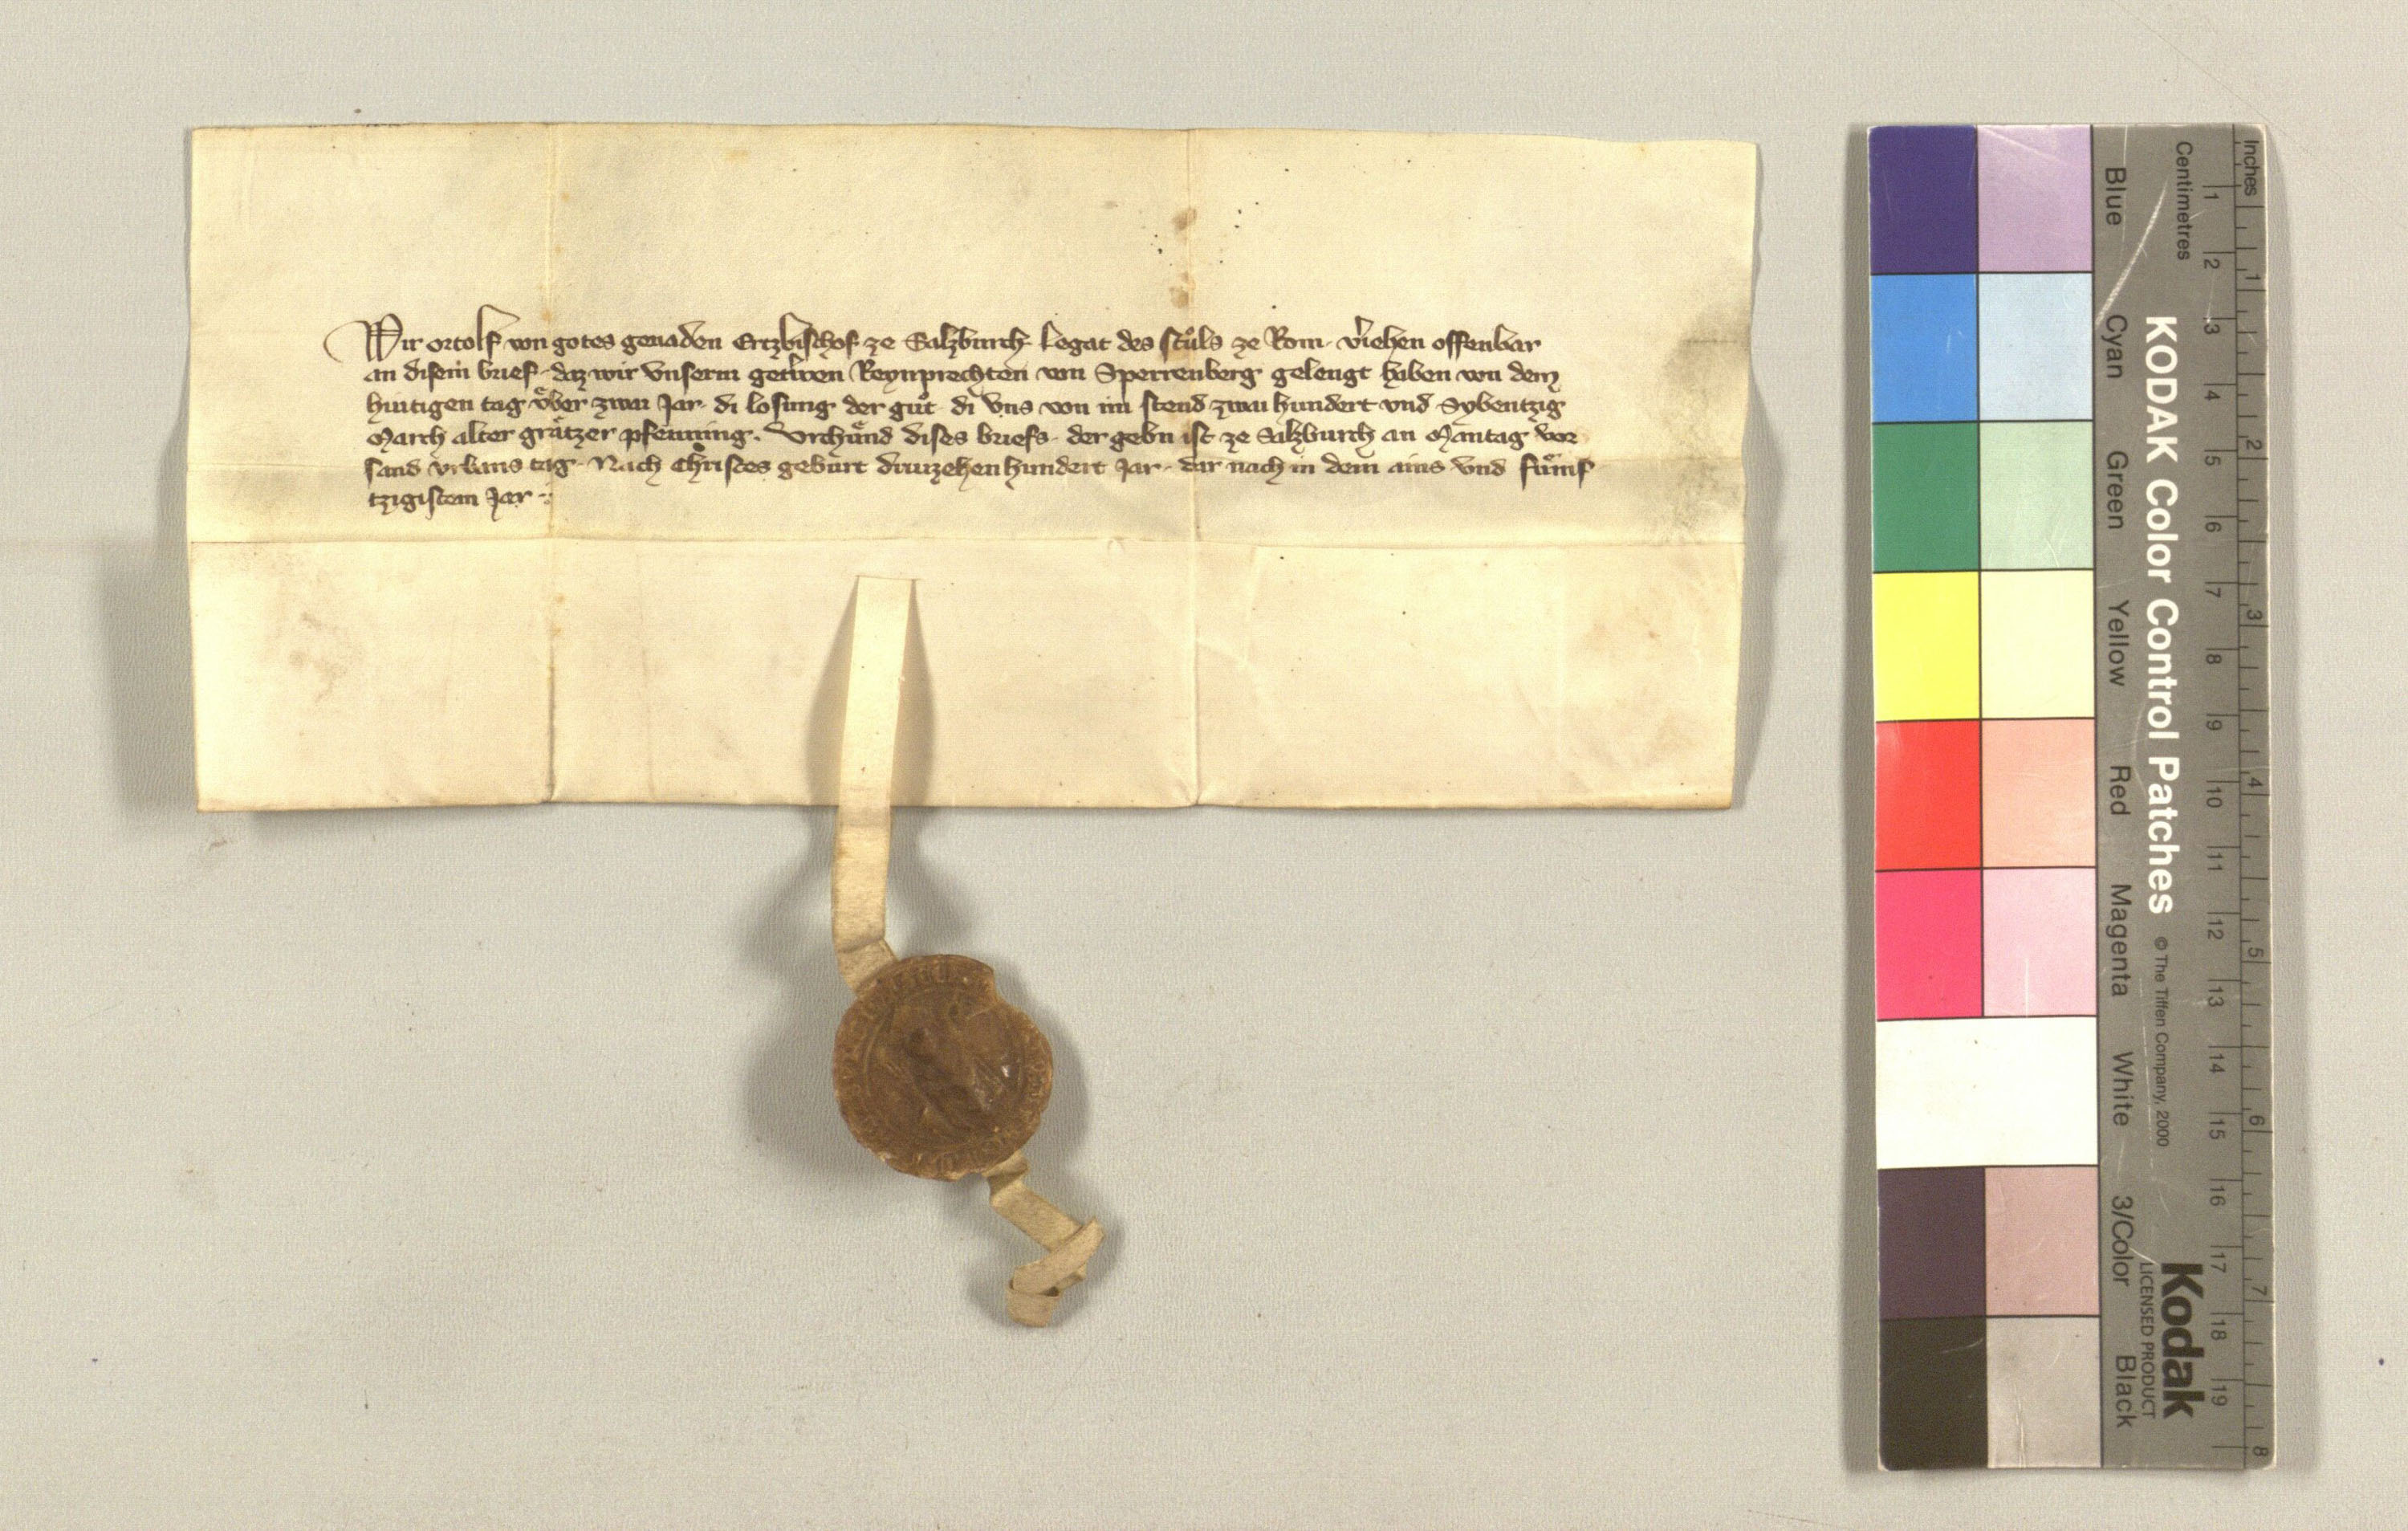 Wir ortolf von gotes genaden Ertzbischof ze Salzburch Legat des stuͦls ze Rom v͛iehen offenbar
an disem brief daz wir vnserm getrewen Reynprechten von Sperrenberg gelengt haben von dem
huitigen tag vͤber zwai Jar di losung der guͦt di vns von im stend zwai hundert vnd Sybentzig
March alter graͤtzer pfenning. Vrchuͤnd dises briefs der gebn ist ze Salzburch an Mantag vor
sand vrbans tag Nach Christes geburt driuzehen hundert Jar dar nach in dem ains vnd fuͤmf
tzigistem Jar
KODAK Color Control Patches © The Tiffen Company, 2000
Kodak
LICENSED PRODUCT
Inches 1 2 3 4 5 6 7 8
Centimetres 1 2 3 4 5 6 7 8 9 10 11 12 13 14 15 16 17 18 19
Blue Cyan Green Yellow Red Magenta White 3/Color Black